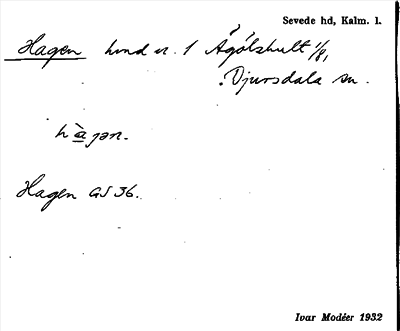 Sevede hd, Kalm. l.
Hagen hmd nr. 1 Ågölshult 1/8,
Djursdala sn.
hàgən.
Hagen GS 36.
Ivar Modéer 1932